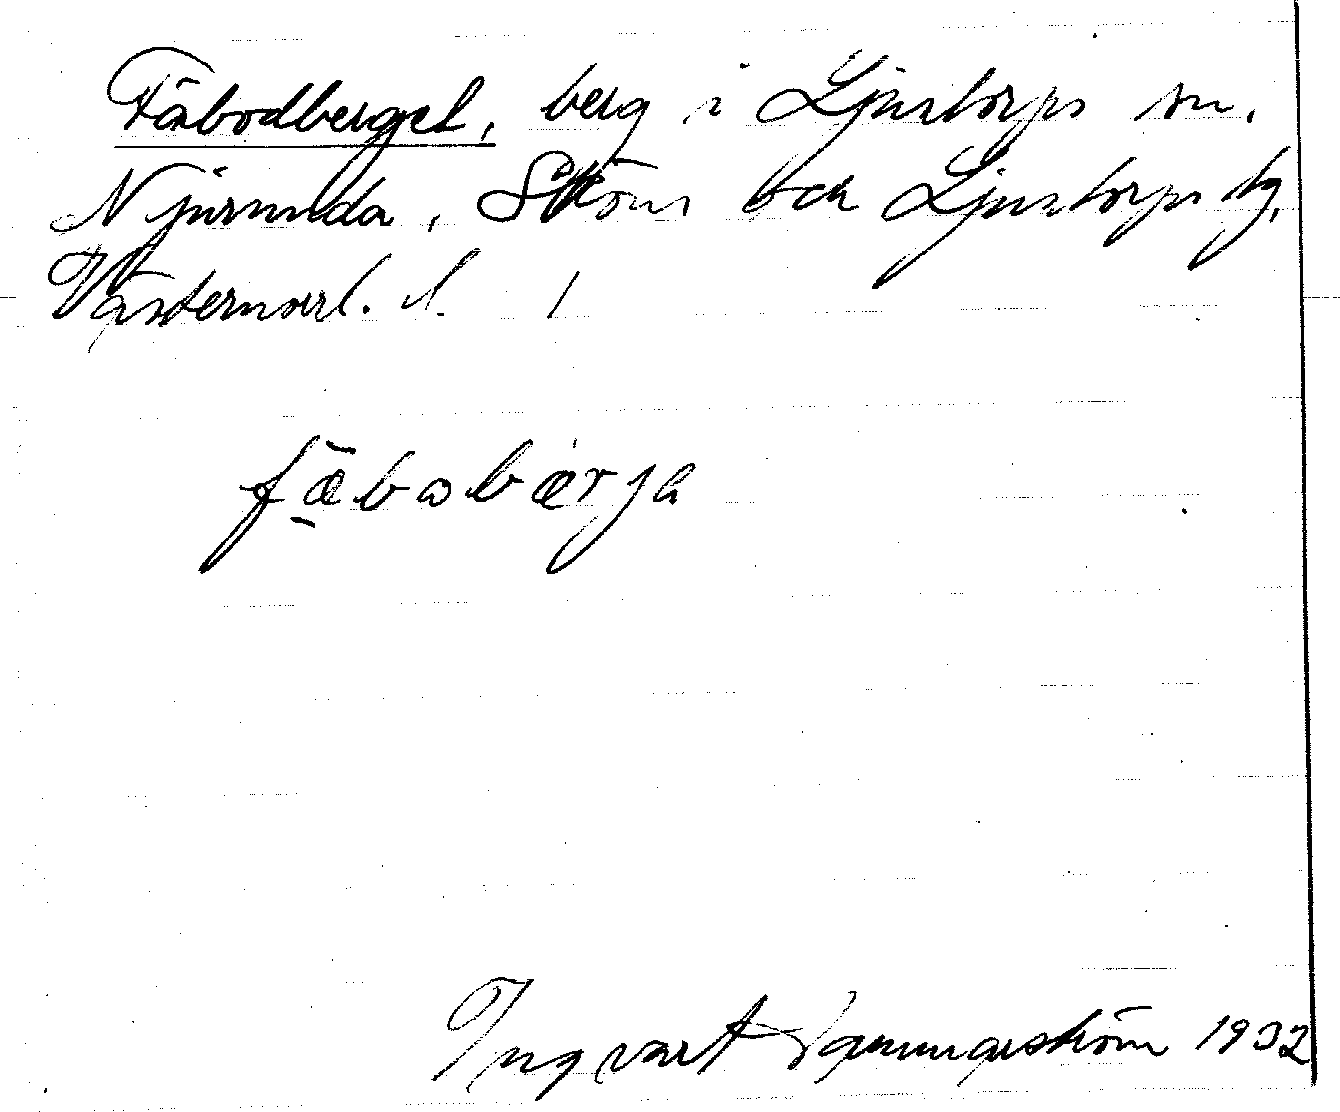 Fäbodberget, berg i Ljustorps sn.
Njurunda, Sköns och Ljustorps tg,
Västernorrl. l. /
fæbobærja
Ingvart Hammarström 1932